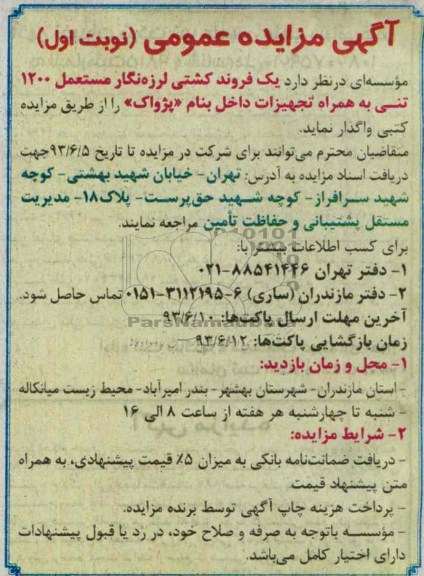 آگهی مزایده عمومی (نوبت اول)
مؤسسه‌ای درنظر دارد یک فروند کشتی لرزه‌نگار مستعمل ۱۲۰۰
تنی به همراه تجهیزات داخل بنام «پژواک» را از طریق مزایده
کتبی واگذار نماید.
متقاضیان محترم می‌توانند برای شرکت در مزایده تا تاریخ ۹۳/۶/۵جهت
دریافت اسناد مزایده به آدرس: تهران- خیابان شهید بهشتی- کوچه
شهید سرافراز- کوچه شهید حق‌پرست- پلاک۱۸- مدیریت
مستقل پشتیبانی و حفاظت تأمین مراجعه نمایند.
برای کسب اطلاعات بیشتر با:
۱- دفتر تهران ۸۸۵۴۱۴۴۶-۰۲۱
۲- دفتر مازندران (ساری) ۶-۳۱۱۲۱۹۵-۰۱۵۱ تماس حاصل شود.
آخرین مهلت ارسال پاکت‌ها: ۹۳/۶/۱۰
ParsNamadData
زمان بازگشایی پاکت‌ها: ۹۳/۶/۱۲
۱- محل و زمان بازدید:
- استان مازندران- شهرستان بهشهر- بندر امیرآباد- محیط زیست میانکاله
- شنبه تا چهارشنبه هر هفته از ساعت ۸ الی ۱۶
۲- شرایط مزایده:
- دریافت ضمانت‌نامه بانکی به میزان ۵٪ قیمت پیشنهادی، به همراه
متن پیشنهاد قیمت
- پرداخت هزینه چاپ آگهی توسط برنده مزایده.
- مؤسسه باتوجه به صرفه و صلاح خود، در رد یا قبول پیشنهادات
دارای اختیار کامل می‌باشد.